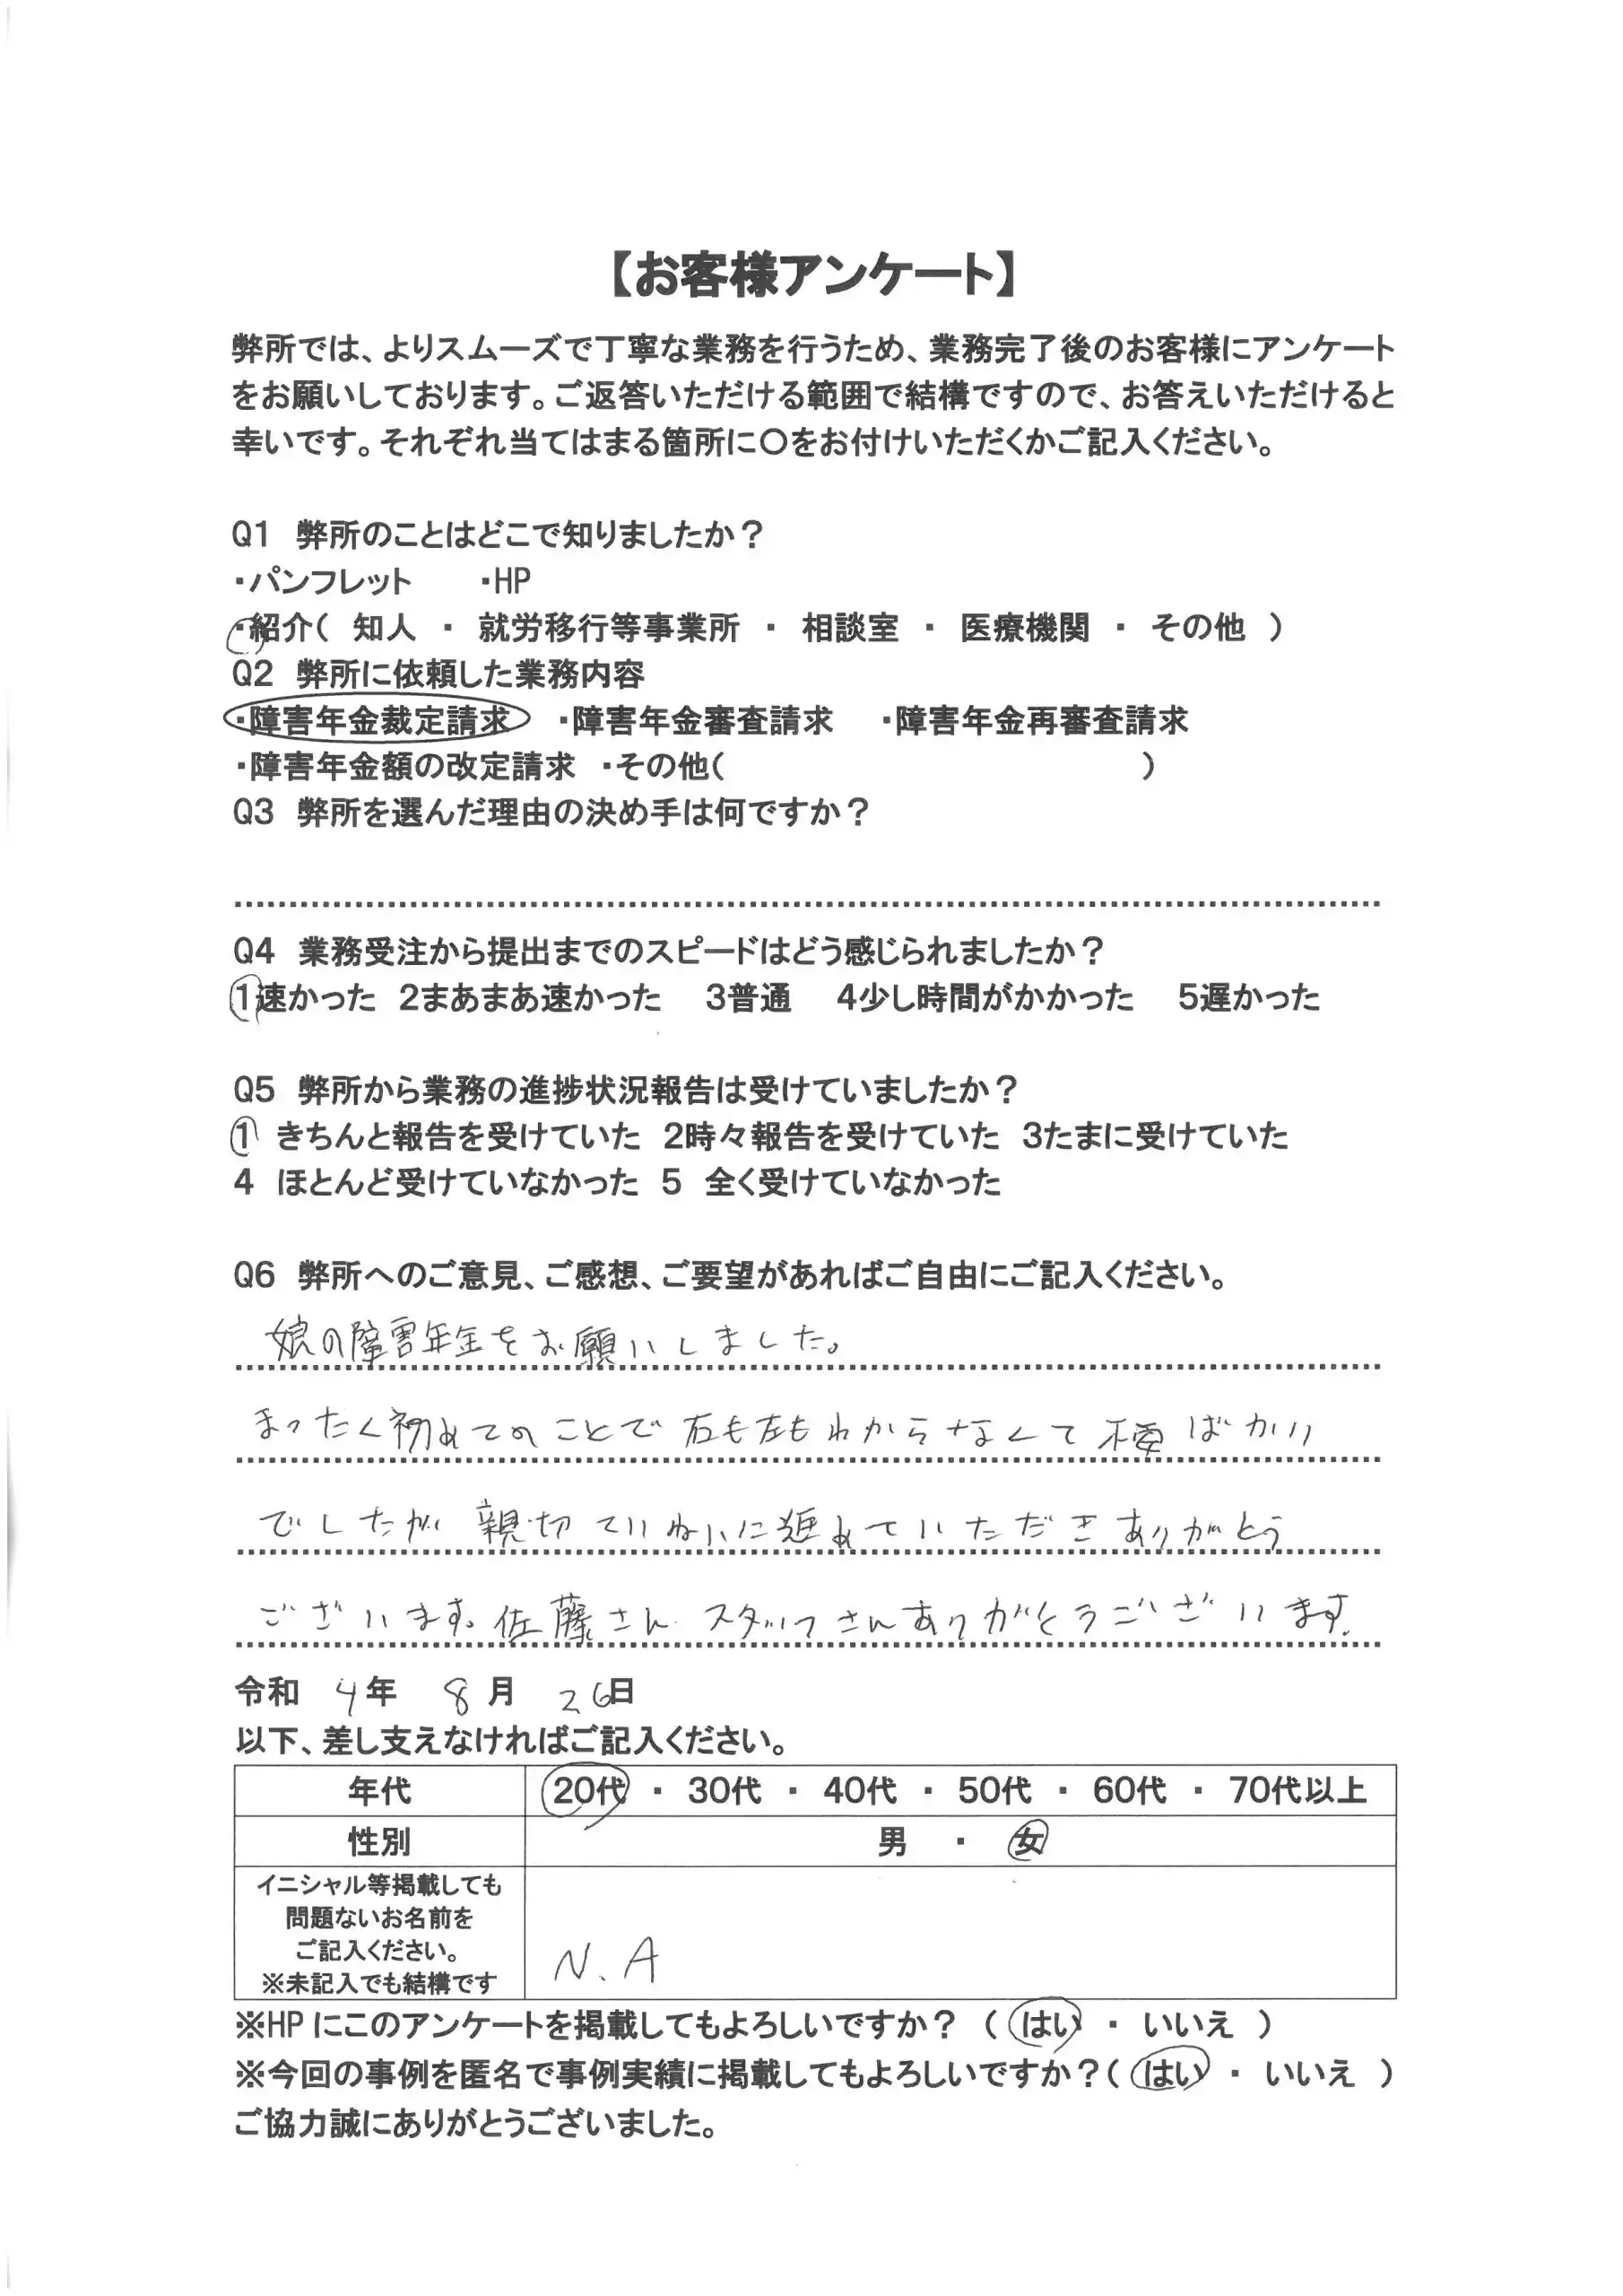 【お客様アンケート】
弊所では、よりスムーズで丁寧な業務を行うため、業務完了後のお客様にアンケート
をお願いしております。ご返答いただける範囲で結構ですので、お答えいただけると
幸いです。それぞれ当てはまる箇所に〇をお付けいただくかご記入ください。
Q1 弊所のことはどこで知りましたか？
・パンフレット ・HP
・紹介（ 知人 ・ 就労移行等事業所 ・ 相談室 ・ 医療機関 ・ その他 ）
Q2 弊所に依頼した業務内容
・障害年金裁定請求 ・障害年金審査請求 ・障害年金再審査請求
・障害年金額の改定請求 ・その他（ ）
Q3 弊所を選んだ理由の決め手は何ですか？
Q4 業務受注から提出までのスピードはどう感じられましたか？
1速かった 2まあまあ速かった 3普通 4少し時間がかかった 5遅かった
Q5 弊所から業務の進捗状況報告は受けていましたか？
1 きちんと報告を受けていた 2時々報告を受けていた 3たまに受けていた
4 ほとんど受けていなかった 5 全く受けていなかった
Q6 弊所へのご意見、ご感想、ご要望があればご自由にご記入ください。
娘の障害年金をお願いしました。
まったく初めてのことで右も左もわからなくて ばかり
でしたが 親切ていねいに進めていただきありがとう
ございます。佐藤さん スタッフさんありがとうございます.
令和 4年 8月 26日
以下、差し支えなければご記入ください。
年代 20代 ・ 30代 ・ 40代 ・ 50代 ・ 60代 ・ 70代以上
性別 男 ・ 女
イニシャル等掲載しても
問題ないお名前を
ご記入ください。
※未記入でも結構です
N.A
※HPにこのアンケートを掲載してもよろしいですか？（ はい ・ いいえ ）
※今回の事例を匿名で事例実績に掲載してもよろしいですか？（ はい ・ いいえ ）
ご協力誠にありがとうございました。